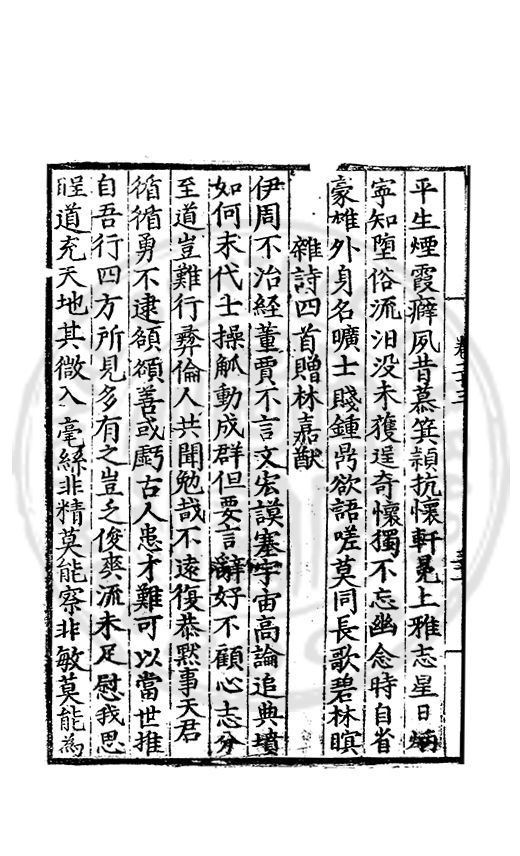 卷二十三
平生煙霞癖夙昔慕箕潁抗懷軒冕上雅志星日炳
寧知墮俗流汨没未獲逞奇懷獨不忘幽念時自省
豪雄外身名曠士賤鍾鼎欲語嗟莫同長歌碧林暝
雜詩四首贈林嘉猷
伊周不治經董賈不言文宏謨塞宇宙高論追典墳
如何末代士操觚動成群但要言辭好不顧心志分
至道豈難行彞倫人共聞勉哉不遠復恭默事天君
循循勇不逮頟頟善或虧古人患才難可以當世推
自吾行四方所見多有之豈乏俊爽流未足慰我思
眐道充天地其微入毫絲非精莫能察非敏莫能為